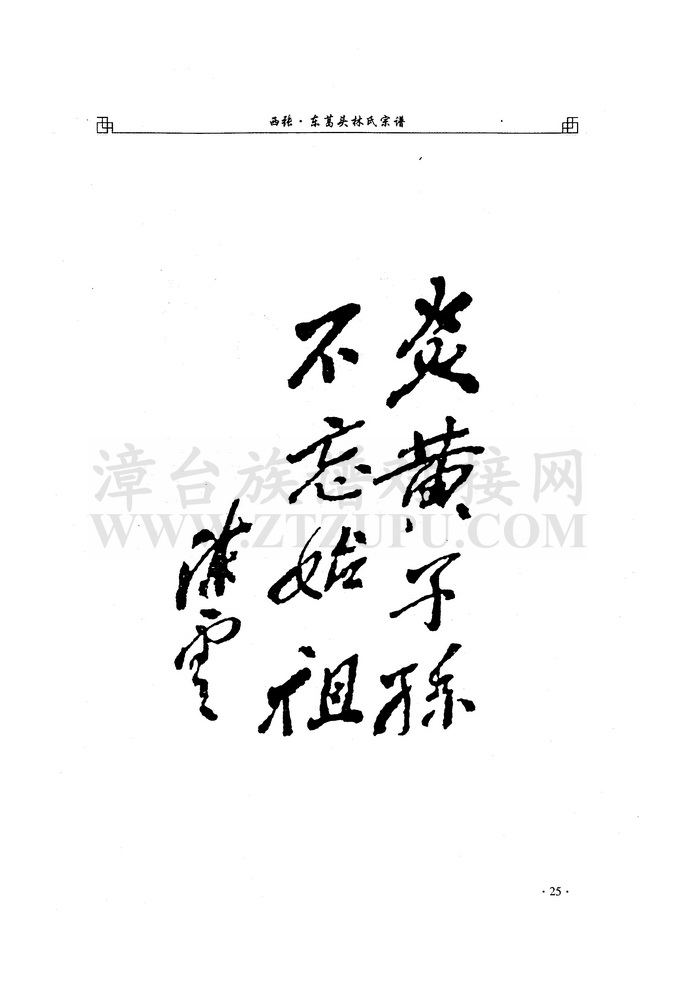 西张·东葛头林氏宗谱
炎黄子孙
不忘始祖
陈云
漳台族谱对接网
WWW.ZTZUPU.COM
·25·